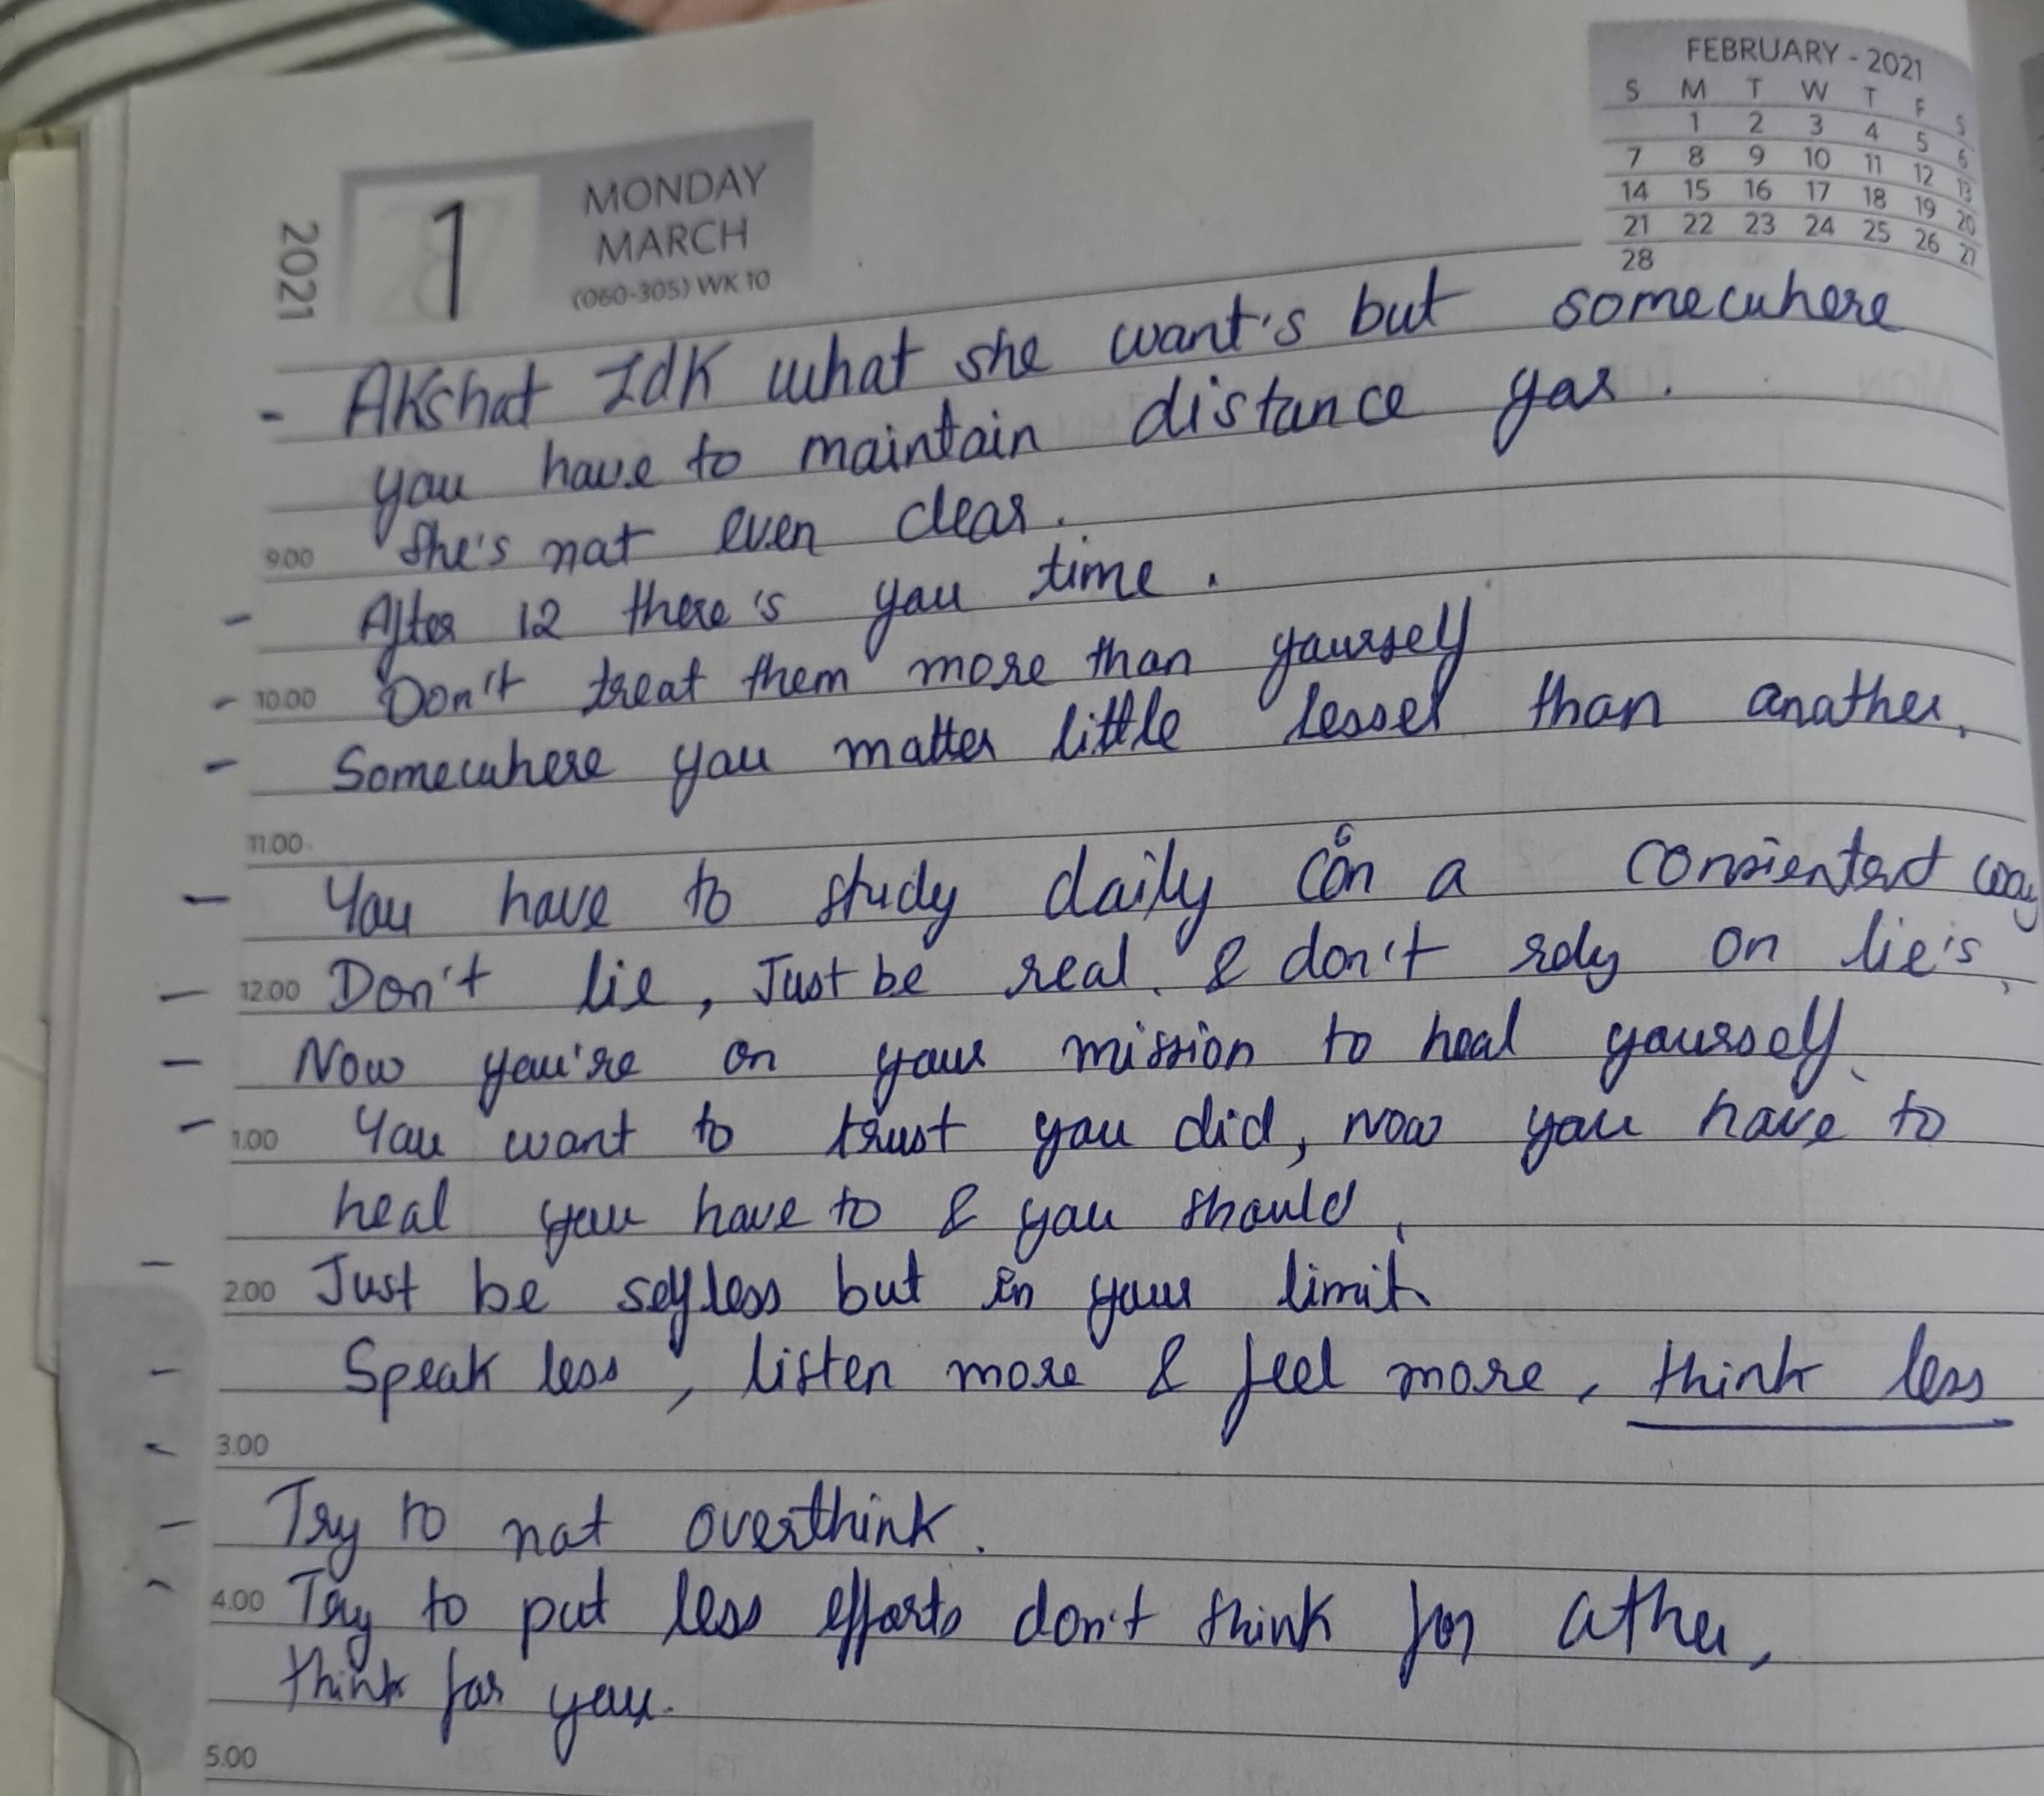 FEBRUARY - 2021
S M T W T F S
1 2 3 4 5 6
7 8 9 10 11 12 13
14 15 16 17 18 19 20
21 22 23 24 25 26 27
28
2021
1
MONDAY
MARCH
(060-305) WK 10
- Akshat Idk what she want's but somewhere
you have to maintain distance yar.
9.00 She's not even clear.
- After 12 there's you time.
- 10.00 Don't treat them more than yourself
- Somewhere you matter little lesser than another.
11.00
- You have to study daily on a way
- 12.00 Don't lie, Just be real. & don't rely on lie's,
- Now you're on your mission to heal yourself.
- 1.00 You want to trust you did, now you have to
heal you have to & you should.
- 2.00 Just be selfless but in your limit.
- Speak less, listen more & feel more, think less
- 3.00
- Try to not overthink.
- 4.00 Try to put less efforts don't think for other,
think for you.
5.00